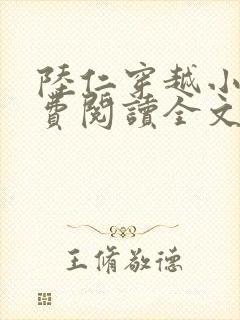 陸仁穿越小
費閱讀全文
王脩敬德